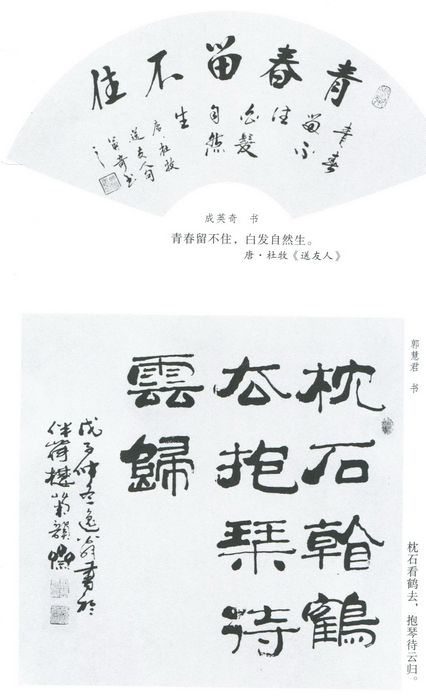 青春留不住
青春
留不
住
白髮
自然
生
唐杜牧
送友人句
英奇书
成英奇 书
青春留不住，白发自然生。
唐·杜牧《送友人》
郭慧君 书
枕石看鶴
去抱琴待
雲歸
戊子仲冬逸翁書於
枕石看鹤去，抱琴待云归。